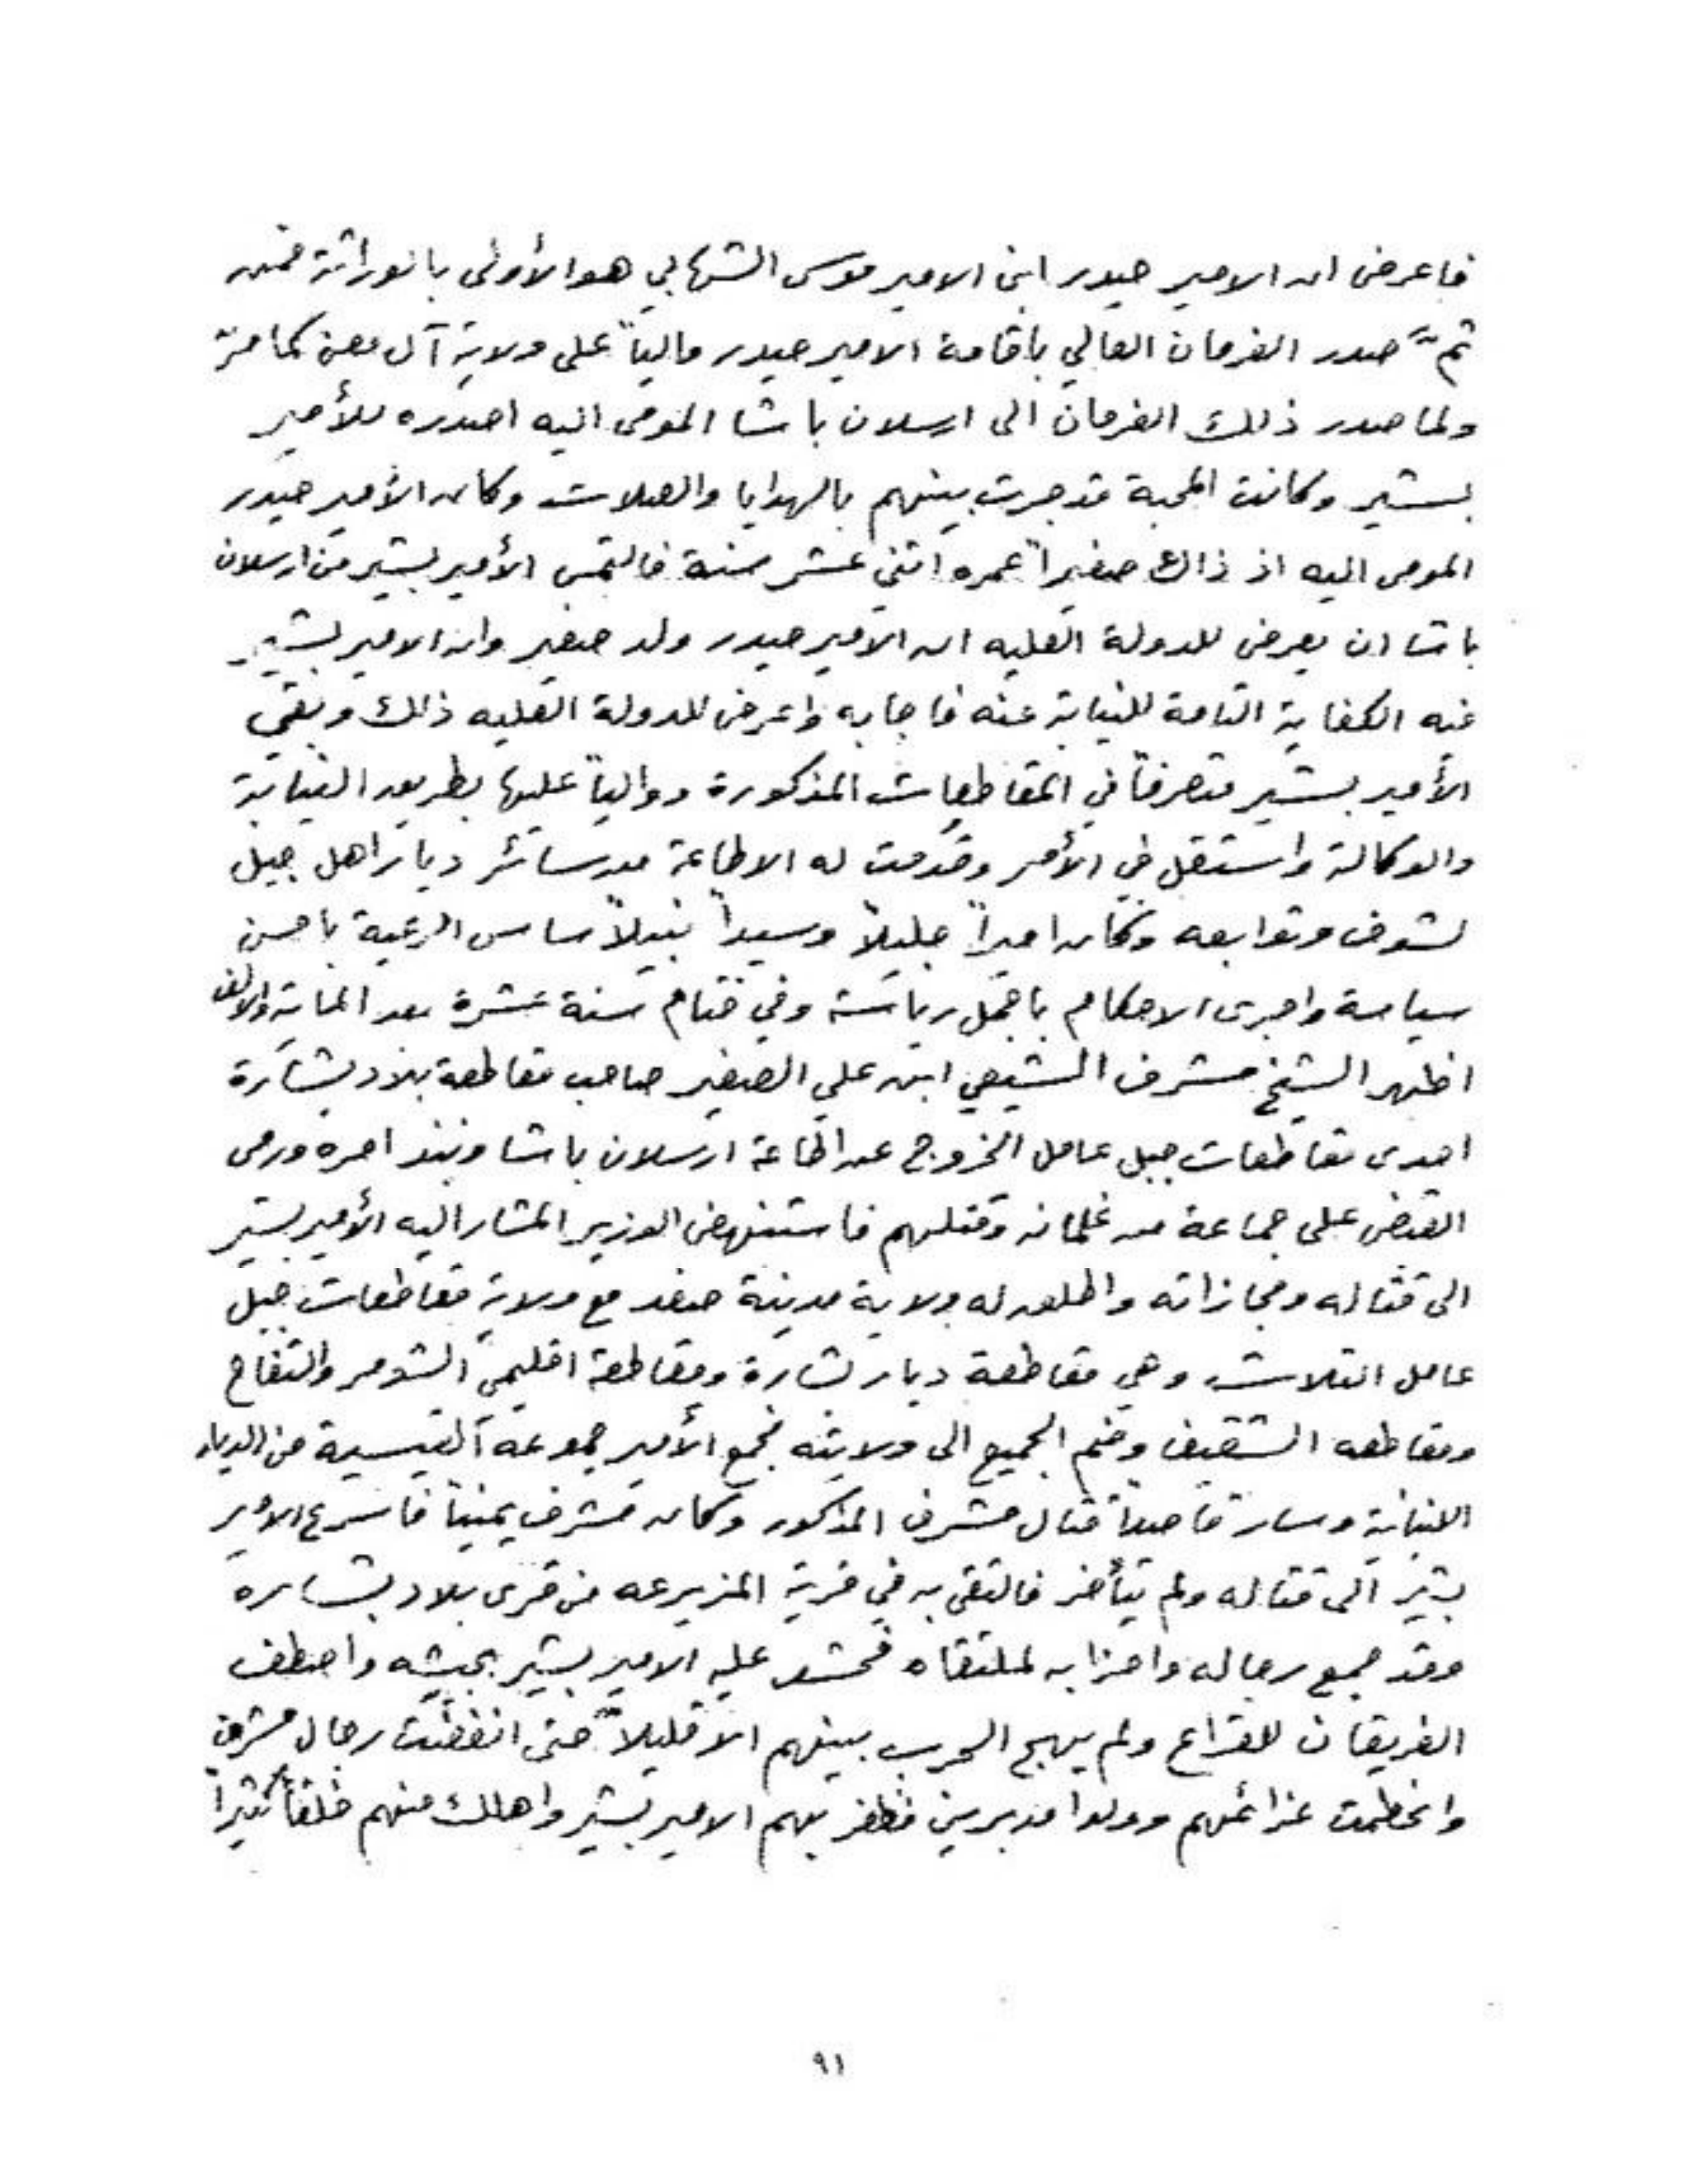 فاعرض ان الامير حيدر ابن الامير موسى الشهابي هو الأولى بالوراثة فمن
ثمّ صدر الفرمان العالي باقامة الامير حيدر والياً على ولاية آل معن كما مرّ
ولما صدر ذلك الفرمان الى ارسلان باشا المومى اليه اصدره للأمير
بشير وكانت المحبة قد جرت بينهم بالهدايا والصلات وكان الأمير حيدر
المومى اليه اذ ذاك صغيراً عمره اثني عشر سنة فالتمس الأمير بشير من ارسلان
باشا ان يعرض للدولة العليه ان الأمير حيدر ولد صغير وان الامير بشير
فيه الكفاية التامة للنيابة عنه فاجابه واعرض للدولة العليه ذلك وبقي
الأمير بشير متصرفاً في المقاطعات المذكورة ووالياً عليها بطريق النيابة
والوكالة واستقل في الأمر وقدمت له الاطاعة من سائر ديار اهل جبل
لشوف وتوابعه وكان اميراً جليلاً وسيداً نبيلاً ساس الرعية باحسن
سياسة واجرى الاحكام باجمل رياسة وفي ختام سنة عشرة بعد الماية والالف
اظهر الشيخ مشرف الشيعي ابن علي الصغير صاحب مقاطعة بلاد بشارة
احدى مقاطعات جبل عامل الخروج عن اطاعة ارسلان باشا ونبذ امره ورمى
القبض على جماعة من غلمانه وقتلهم فاستنهض الوزير المشار اليه الأمير بشير
الى قتاله ومجازاته واطلق له ولاية مدينة صفد مع ولاية مقاطعات جبل
عامل الثلاث وهي مقاطعة ديار بشارة ومقاطعة اقليمي الشومر والتفاح
ومقاطعه الشقيف وضم الجميع الى ولايته فجمع الأمير جموعه القيسية من الديار
اللبنانية وسار قاصداً قتال مشرف المذكور وكان مشرف يمنياً فاسرع الأمير
بشير الى قتاله ولم يتأخر فالتقى به في قرية المزيرعه من قرى بلاد بشاره
وقد جمع رجاله واحزابه لملتقاه فحشد عليه الامير بشير بجيشه واصطف
الفريقان للقراع ولم يهج الحرب بينهم الا قليلاً حتى انفضت رجال مشرف
وانحطمت عزائمهم وولوا مدبرين فظفر بهم الامير بشير واهلك منهم خلقاً كثيراً
٩١